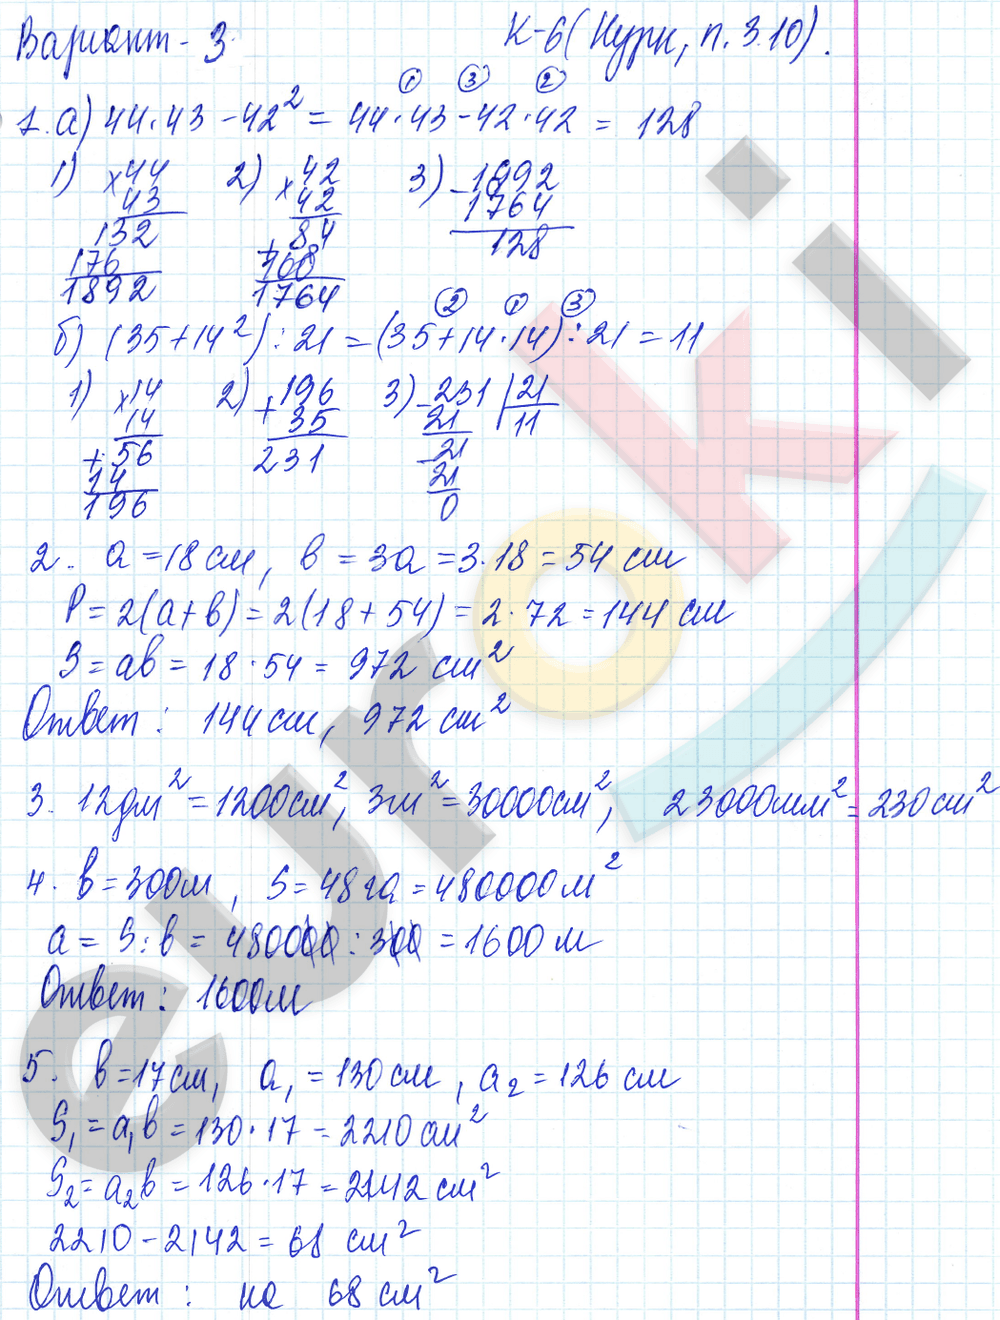 Вариант - 3 К-6 (Нурк, п. 3.10).
① ③ ②
1. а) 44·43 - 42² = 44·43 - 42·42 = 128
1) ×44 2) ×42 3) -1892
43 42 1764
132 +84 128
176 168
1892 1764
② ① ③
б) (35+14²) : 21 = (35+14·14) : 21 = 11
1) ×14 2) +196 3) -231 | 21
14 35 21 11
+56 231 -21
14 21
196 0
2. a = 18 см, в = 3а = 3·18 = 54 см
P = 2(а+в) = 2(18+54) = 2·72 = 144 см
S = ав = 18·54 = 972 см²
Ответ: 144 см, 972 см²
3. 12дм² = 1200см², 3м² = 30000см², 23000мм² = 230см²
4. в = 300м, S = 48га = 480000м²
а = S : в = 480000 : 300 = 1600 м
Ответ: 1600м
5. в = 17см, а₁ = 130см, а₂ = 126 см
S₁ = а₁в = 130·17 = 2210 см²
S₂ = а₂в = 126·17 = 2142 см²
2210 - 2142 = 68 см²
Ответ: на 68 см²
euroki